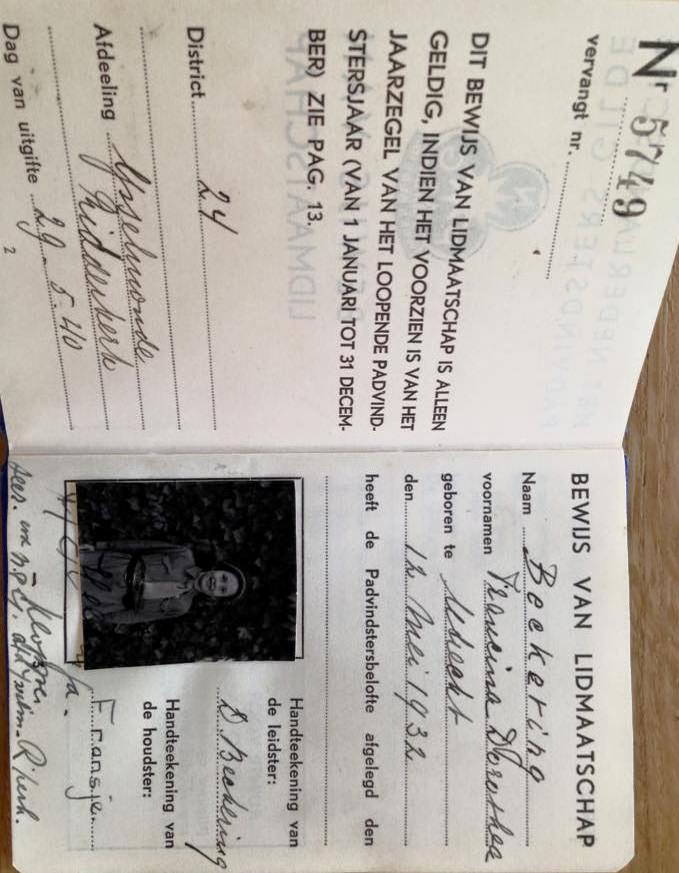 Nr 5749
vervangt nr.
DIT BEWIJS VAN LIDMAATSCHAP IS ALLEEN
GELDIG, INDIEN HET VOORZIEN IS VAN HET
JAARZEGEL VAN HET LOOPENDE PADVIND-
STERSJAAR (VAN 1 JANUARI TOT 31 DECEM-
BER) ZIE PAG. 13.
District 24
Afdeeling IJsselmonde
Ridderkerk
Dag van uitgifte 29-5-40
2
BEWIJS VAN LIDMAATSCHAP
Naam Beckering
voornamen Francina Dorothea
geboren te Utrecht
den 12 Mei 1932
heeft de Padvindstersbelofte afgelegd den
Handteekening van
de leidster:
D. Beckering
Handteekening van
de houdster:
Fransje